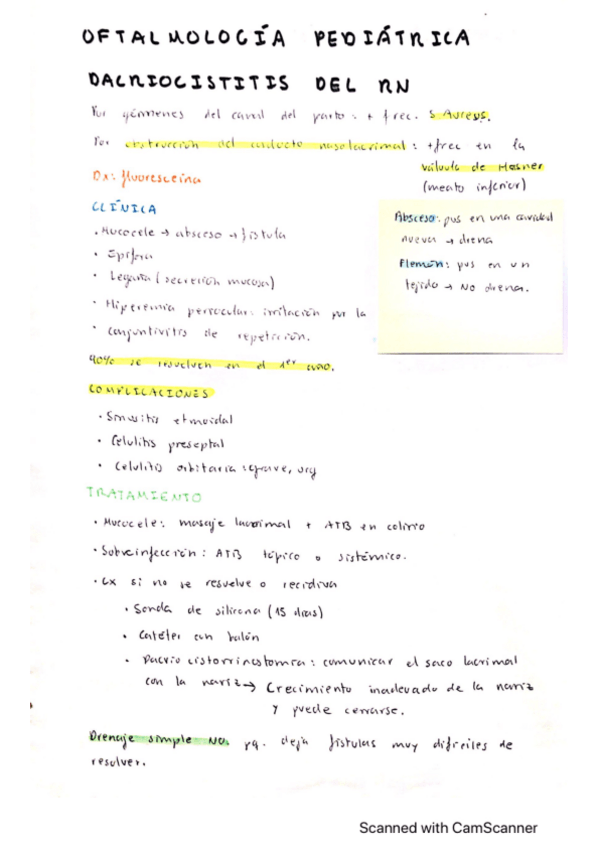 OFTALMOLOGÍA PEDIÁTRICA
DACRIOCISTITIS DEL RN
Por gérmenes del canal del parto: + frec. S Aureus.
Por obstrucción del conducto nasolacrimal: +frec en la
válvula de Hasner
(meato inferior)
Dx: fluoresceína
CLÍNICA
• Mucocele → absceso → fístula
• Epífora
• Legaña (secreción mucosa)
• Hiperemia periocular: irritación por la
• conjuntivitis de repetición.
Absceso: pus en una cavidad
nueva → drena
Flemón: pus en un
tejido → No drena.
90% se resuelven en el 1er año.
COMPLICACIONES
• Sinusitis etmoidal
• Celulitis preseptal
• Celulitis orbitaria: grave, urg
TRATAMIENTO
• Mucocele: masaje lacrimal + ATB en colirio
• Sobreinfección: ATB tópico o sistémico.
• Cx si no se resuelve o recidiva
• Sonda de silicona (15 días)
• Catéter con balón
• Dacriocistorrinostomía: comunicar el saco lacrimal
con la nariz → Crecimiento inadecuado de la nariz
y puede cerrarse.
Drenaje simple NO. pq. deja fístulas muy difíciles de
resolver.
Scanned with CamScanner